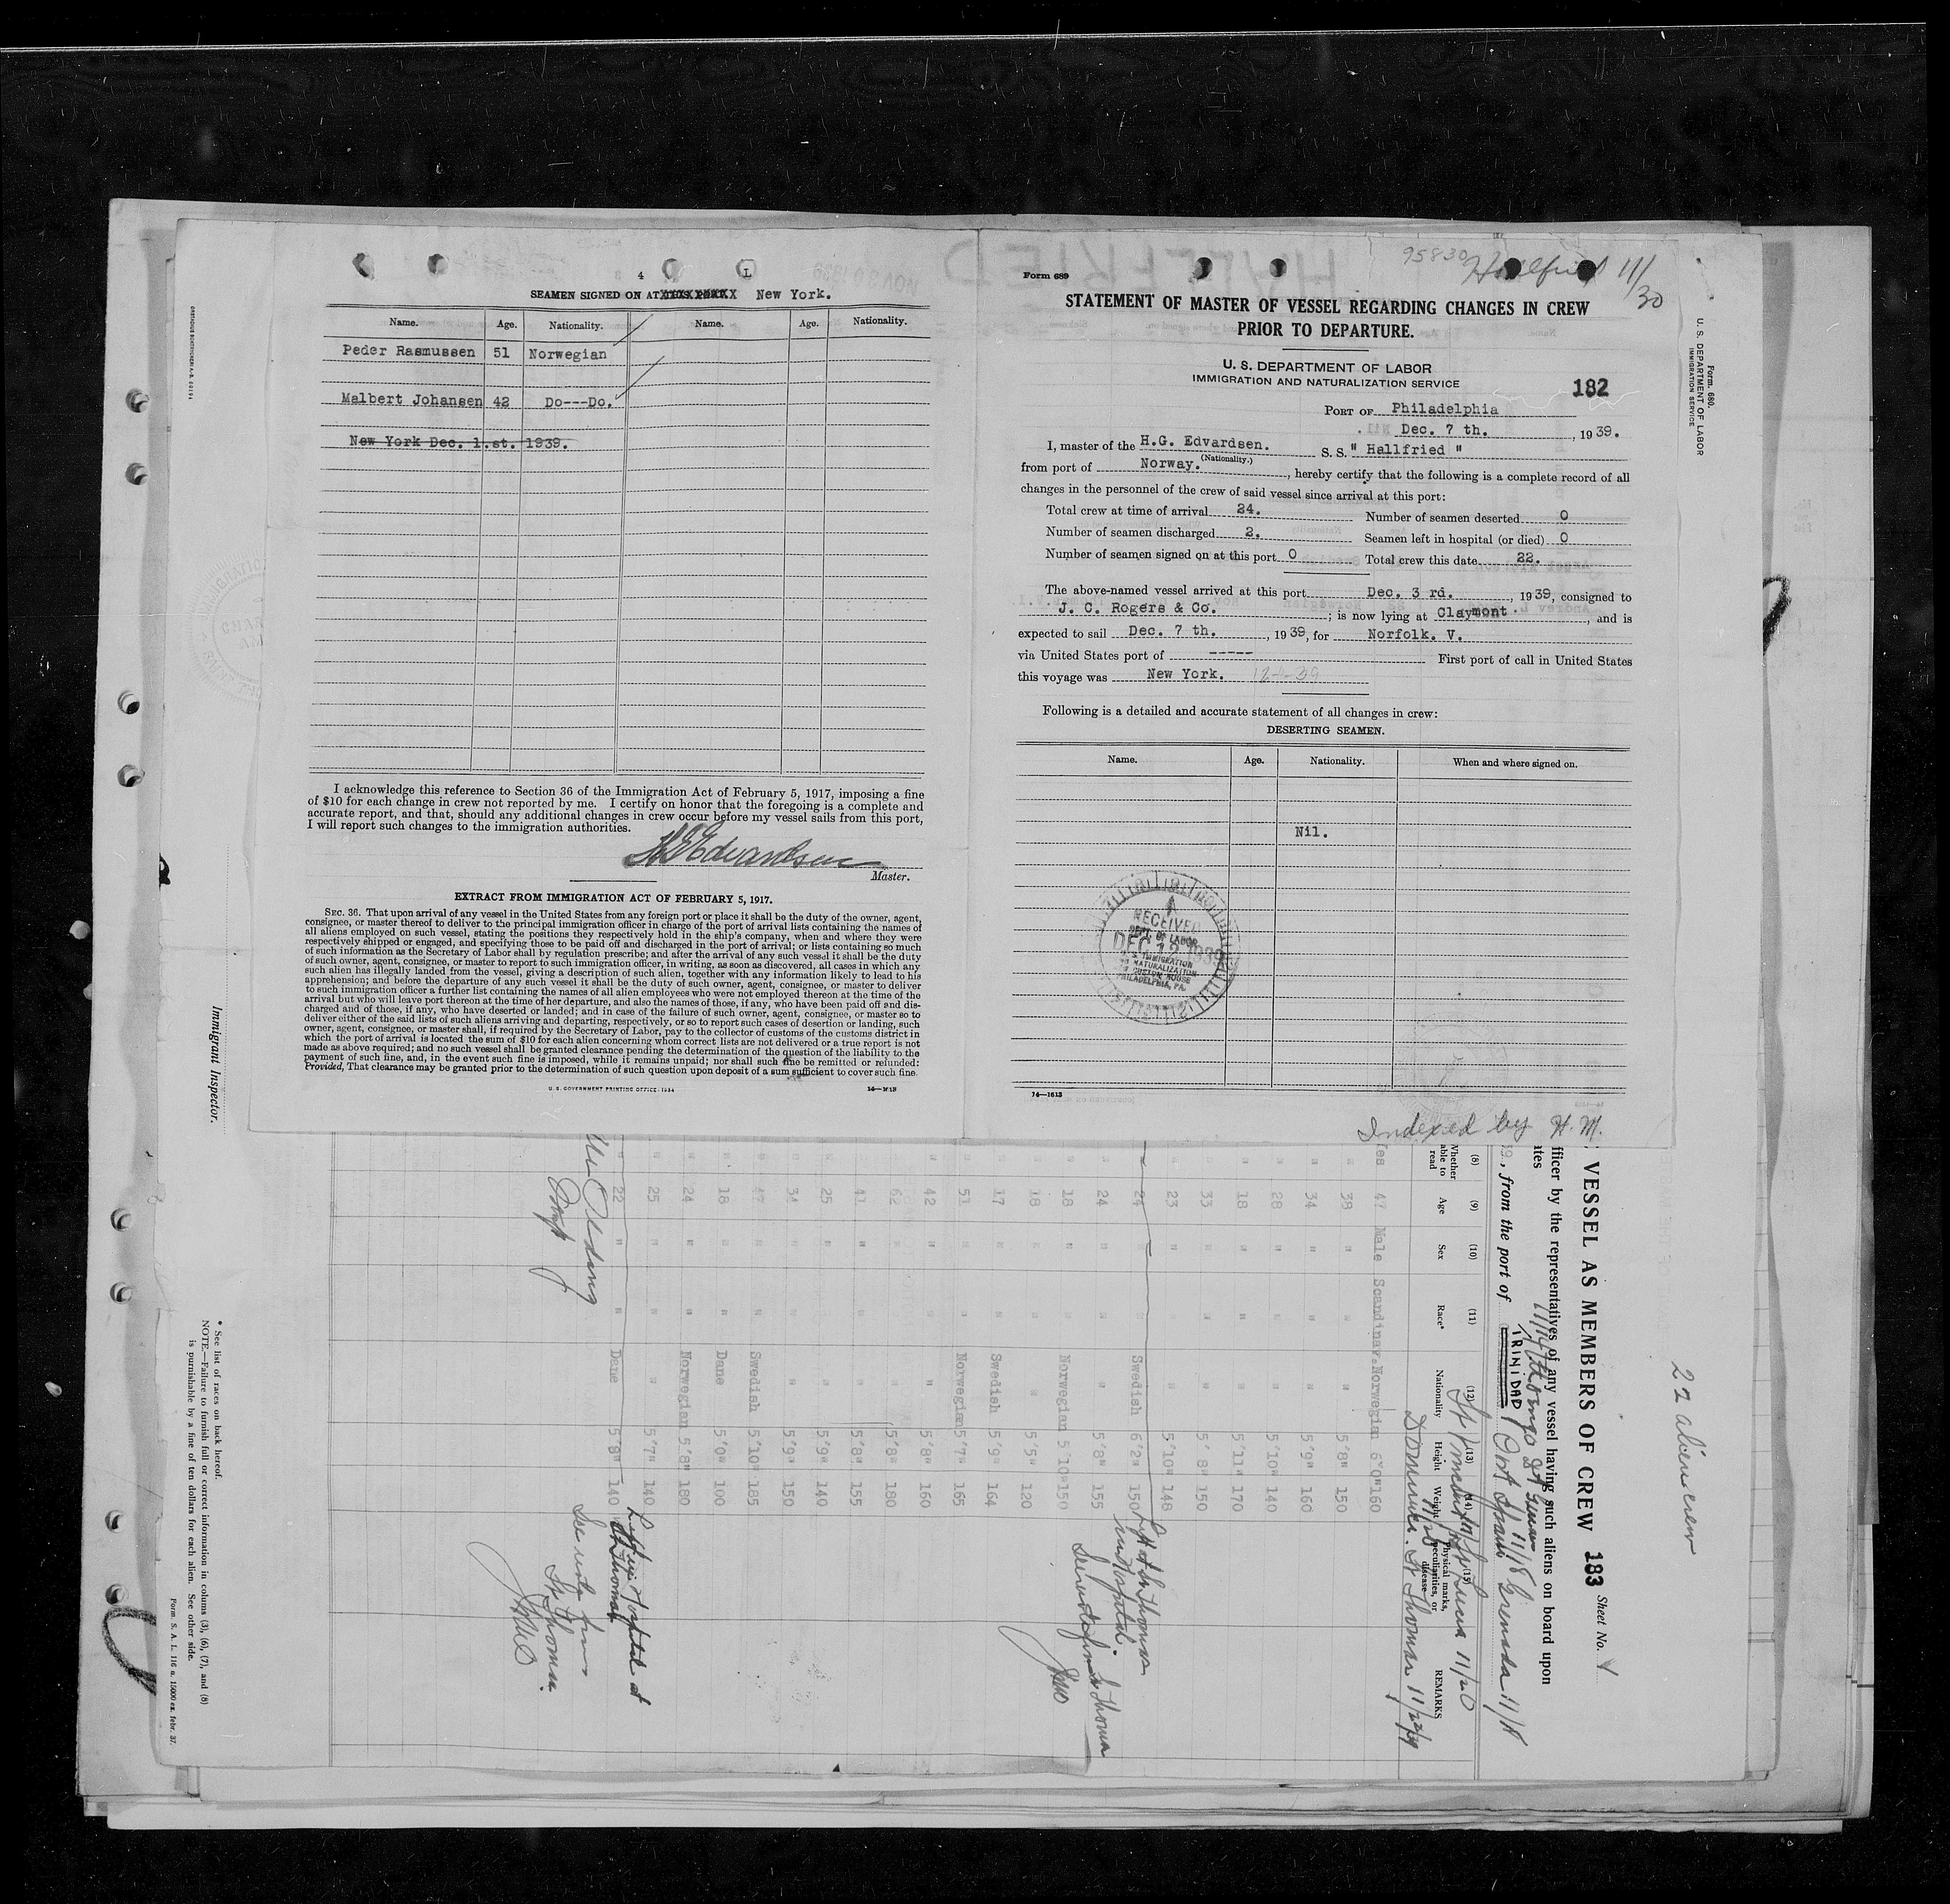 4
SEAMEN SIGNED ON AT New York.
Name. Age. Nationality. Name. Age. Nationality.
Peder Rasmussen 51 Norwegian
Malbert Johansen 42 Do---Do.
New York Dec. 1.st. 1939.
I acknowledge this reference to Section 36 of the Immigration Act of February 5, 1917, imposing a fine
of $10 for each change in crew not reported by me. I certify on honor that the foregoing is a complete and
accurate report, and that, should any additional changes in crew occur before my vessel sails from this port,
I will report such changes to the immigration authorities.
HGEdvardsen
Master.
EXTRACT FROM IMMIGRATION ACT OF FEBRUARY 5, 1917.
SEC. 36. That upon arrival of any vessel in the United States from any foreign port or place it shall be the duty of the owner, agent,
consignee, or master thereof to deliver to the principal immigration officer in charge of the port of arrival lists containing the names of
all aliens employed on such vessel, stating the positions they respectively hold in the ship's company, when and where they were
respectively shipped or engaged, and specifying those to be paid off and discharged in the port of arrival; or lists containing so much
of such information as the Secretary of Labor shall by regulation prescribe; and after the arrival of any such vessel it shall be the duty
of such owner, agent, consignee, or master to report to such immigration officer, in writing, as soon as discovered, all cases in which any
such alien has illegally landed from the vessel, giving a description of such alien, together with any information likely to lead to his
apprehension; and before the departure of any such vessel it shall be the duty of such owner, agent, consignee, or master to deliver
to such immigration officer a further list containing the names of all alien employees who were not employed thereon at the time of the
arrival but who will leave port thereon at the time of her departure, and also the names of those, if any, who have been paid off and dis-
charged and of those, if any, who have deserted or landed; and in case of the failure of such owner, agent, consignee, or master so to
deliver either of the said lists of such aliens arriving and departing, respectively, or so to report such cases of desertion or landing, such
owner, agent, consignee, or master shall, if required by the Secretary of Labor, pay to the collector of customs of the customs district in
which the port of arrival is located the sum of $10 for each alien concerning whom correct lists are not delivered or a true report is not
made as above required; and no such vessel shall be granted clearance pending the determination of the question of the liability to the
payment of such fine, and, in the event such fine is imposed, while it remains unpaid; nor shall such fine be remitted or refunded:
Provided, That clearance may be granted prior to the determination of such question upon deposit of a sum sufficient to cover such fine.
U. S. GOVERNMENT PRINTING OFFICE: 1934
95830 Hallfried 11/30
Form 689
STATEMENT OF MASTER OF VESSEL REGARDING CHANGES IN CREW
PRIOR TO DEPARTURE.
U. S. DEPARTMENT OF LABOR
IMMIGRATION AND NATURALIZATION SERVICE
182
PORT OF Philadelphia
Dec. 7 th. , 1939.
I, master of the H.G. Edvardsen. S. S. " Hallfried "
(Nationality.)
from port of Norway. , hereby certify that the following is a complete record of all
changes in the personnel of the crew of said vessel since arrival at this port:
Total crew at time of arrival 24. Number of seamen deserted 0
Number of seamen discharged 2. Seamen left in hospital (or died) 0
Number of seamen signed on at this port 0 Total crew this date 22.
The above-named vessel arrived at this port Dec. 3 rd. , 1939, consigned to
J. C. Rogers & Co. ; is now lying at Claymont. , and is
expected to sail Dec. 7 th. , 1939, for Norfolk. V.
via United States port of ----- First port of call in United States
this voyage was New York.
Following is a detailed and accurate statement of all changes in crew:
DESERTING SEAMEN.
Name. Age. Nationality. When and where signed on.
Nil.
RECEIVED
DEPT. OF LABOR
IMMIGRATION
NATURALIZATION
CUSTOM HOUSE
PHILADELPHIA, PA.
14—1613
Indexed by H. M.
Form. 680.
U. S. DEPARTMENT OF LABOR
IMMIGRATION SERVICE
22 alien crew
VESSEL AS MEMBERS OF CREW 183 Sheet No. 1
fficer by the representatives of any vessel having such aliens on board upon
, from the port of TRINIDAD Port Spain Grenada
St. Thomas 11/22/39
(8) (9) (10) (11) (12) (13) (14) (15)
Whether able to read Age Sex Race* Nationality Height Weight Physical marks, peculiarities, or disease REMARKS
Yes 47 Male Scandinav. Norwegian 6'0" 160
" 39 " " " 5'8" 150
" 34 " " " 5'9" 160
" 28 " " " 5'10" 140
" 18 " " " 5'11" 170
" 33 " " " 5'8" 150
" 23 " " " 5'10" 148
" 24 " " Swedish 6'2" 150 Left at St Thomas in Hospital.
" 24 " " " 5'8" 155
" 18 " " Norwegian 5'10" 150
" 18 " " " 5'5" 120
" 17 " " Swedish 5'9" 164
" 51 " " Norwegian 5'7" 165
" 42 " " " 5'8" 160
" 62 " " " 5'8" 180
" 41 " " " 5'8" 155
" 25 " " " 5'9" 140
" 34 " " " 5'9" 150
" 47 " " Swedish 5'10" 185
" 18 " " Dane 5'0" 100
" 24 " " Norwegian 5'8" 180
" 25 " " " 5'7" 140
" 22 " " Dane 5'8" 140 Left in Hospital at St Thomas
See note from St Thomas.
Immigrant Inspector.
* See list of races on back hereof.
NOTE.—Failure to furnish full or correct information in colums (3), (6), (7), and (8)
is purnishable by a fine of ten dollars for each alien. See other side.
Form. S. A. L. 116 a. 15000 ex. febr. 37.